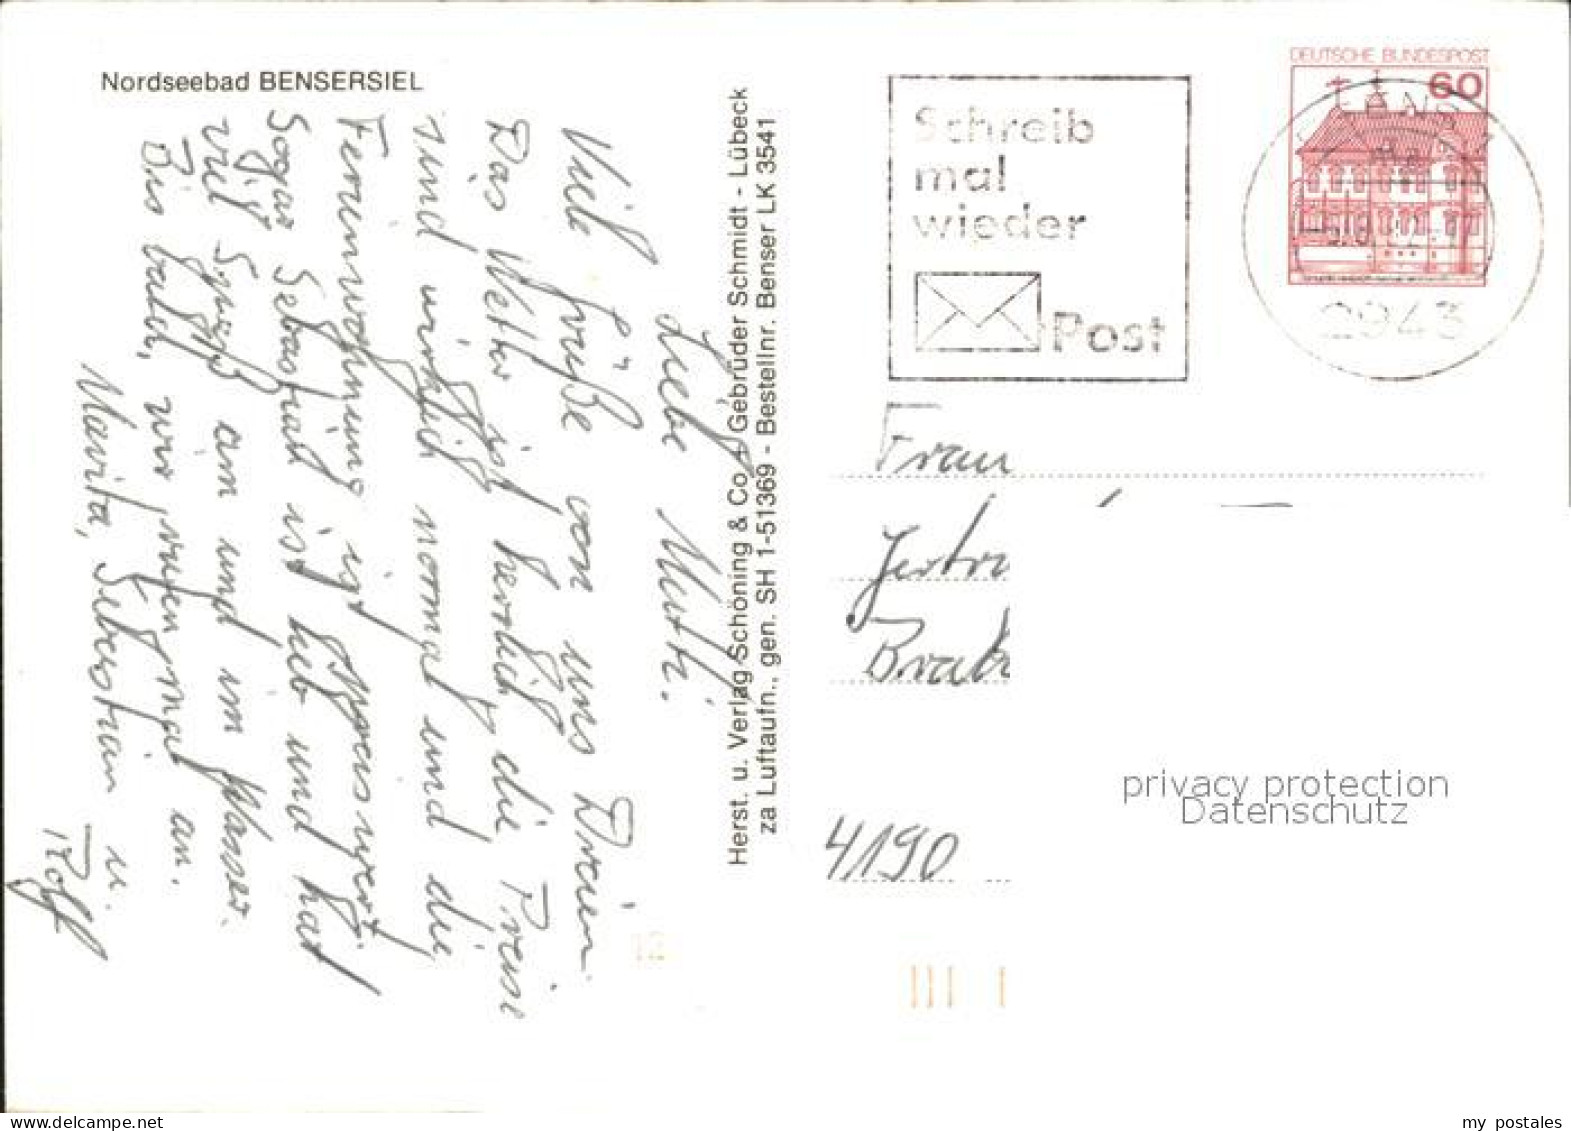 Nordseebad BENSERSIEL
Liebe Mutti.
Viele Grüße von uns Dreien.
Das Wetter ist herrlich, die Preise
sind wirklich normal und die
Ferienwohnung ist preiswert.
Sogar Sebastian ist lieb und hat
viel Spaß am und im Wasser.
Bis bald, wir rufen mal an.
Marita, Sebastian u.
Rolf
Herst. u. Verlag Schöning & Co + Gebrüder Schmidt - Lübeck
za Luftaufn., gen. SH 1-51369 - Bestellnr. Benser LK 3541
Schreib
mal
wieder
Post
DEUTSCHE BUNDESPOST
60
2943
Frau
Gertru
Brab
4190
privacy protection
Datenschutz
www.delcampe.net
my_postales